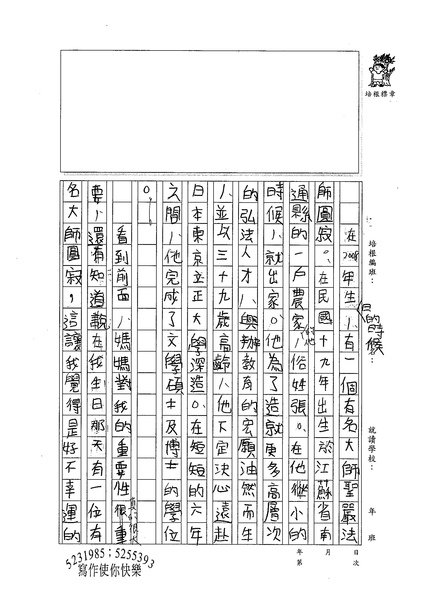 培根標章
培根編班：
就讀學校：
年 班
日 次
月
年 第
在2009年生日的時候，有一個有名大師聖嚴法
師圓寂。在民國十九年出生於江蘇省南
通縣的一戶農家，俗姓張。在他很小的
時候，就出家。他為了造就更多高層次
的弘法人才，興辦教育的宏願油然而生
，並以三十九歲高齡，他下定決心遠赴
日本東京立正大學深造。在短短的六年
之間，他完成了文學碩士及博士的學位
。
看到前面，媽媽對我的重要性很重
要，還有知道說在我生日那天有一位有
名大師圓寂，這讓我覺得是好不幸運的
5231985；5255393
寫作使你快樂